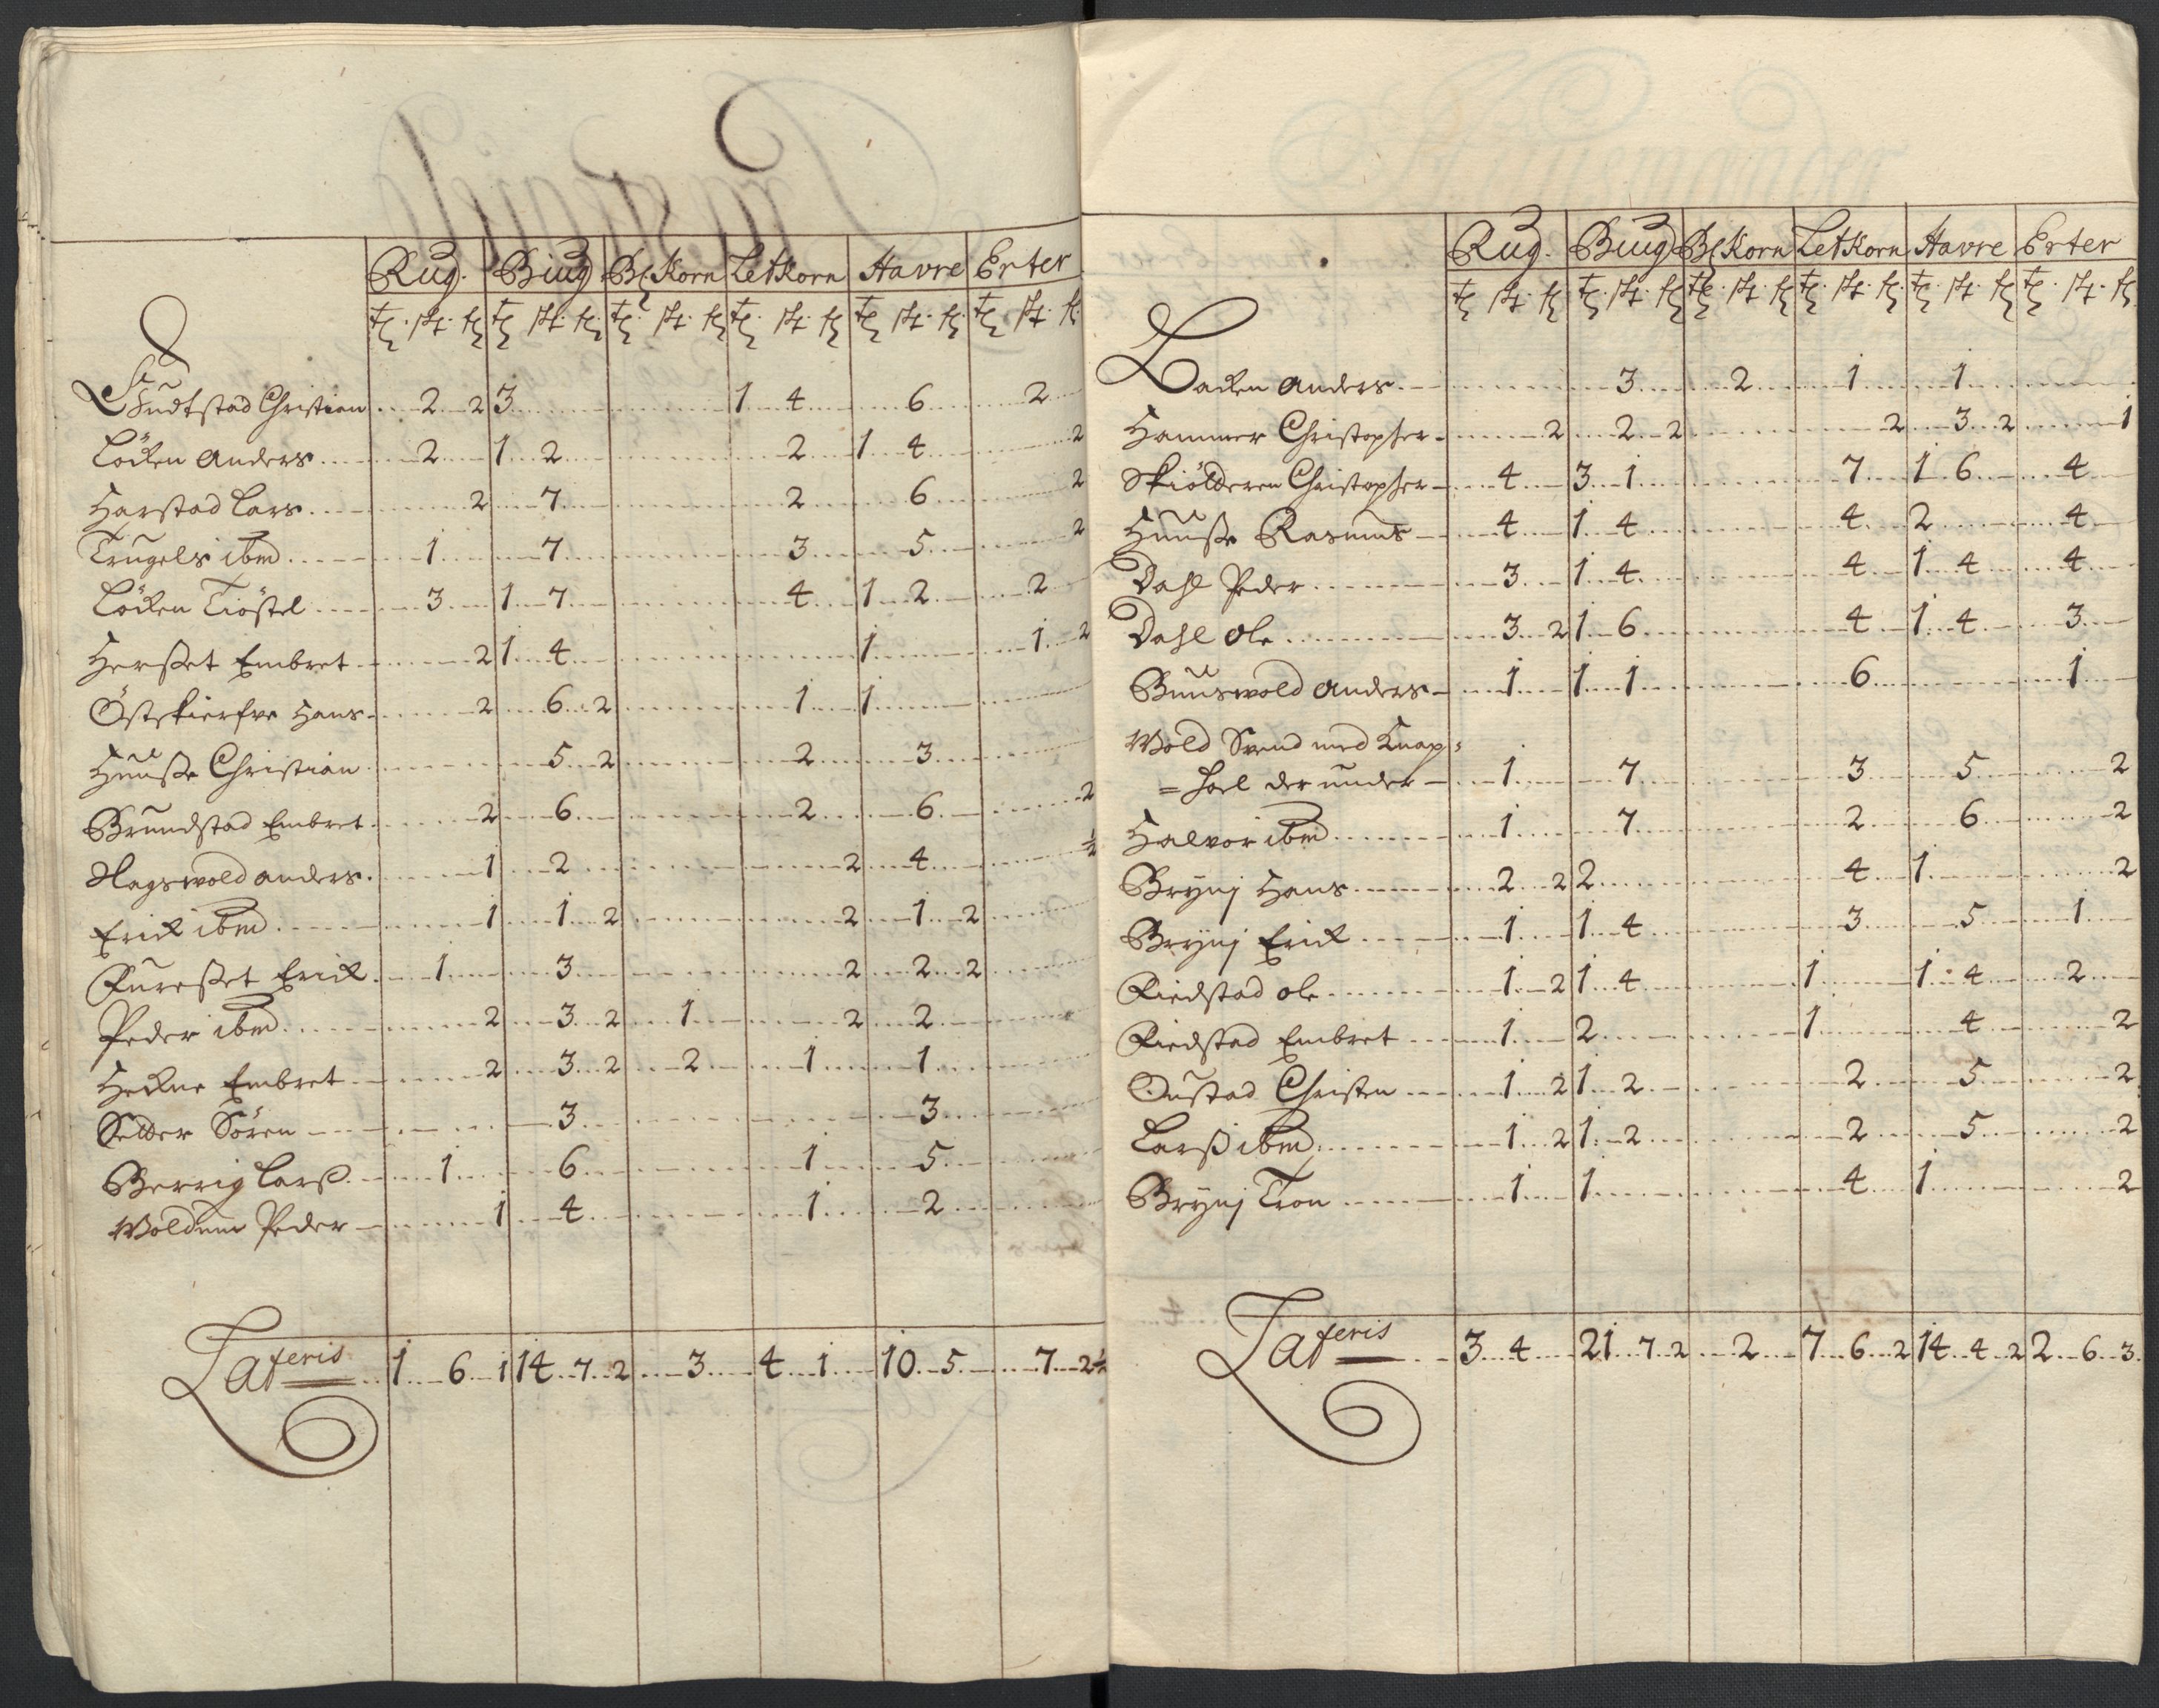 Rug. Biug Bl Korn Letkorn Havre Erter
tr. sk. fr. tr. sk. fr. tr. sk. fr. tr. sk. fr. tr. sk. fr. tr. sk. fr.
Christian 2 2 3 1 4 6 2
Löcken Anders 2 1 2 2 1 4 2
Harstad Lars 2 7 2 6 2
Trugels ibm 1 7 3 5 2
Löcken Tiöstel 3 1 7 4 1 2 2
Herßet Embret 2 1 4 1 1 2
Östskierfve Hans 2 6 2 1 1
Huuße Christian 5 2 2 3
Brundstad Embret 2 6 2 6 2
Hagswold Anders 1 2 2 4 ½
Erick ibm 1 1 2 2 1 2
Fureßet Erick 1 3 2 2 2
Peder ibm 2 3 2 1 2 2
Heckne Embret 2 3 2 2 1 1
Sören 3 3
Berrig Larß 1 6 1 5
Woldum Peder 1 4 1 2
Lateris 1 6 1 14 7 2 3 4 1 10 5 7 2½
Rug. Biug Bl Korn Letkorn Havre Erter
tr. sk. fr. tr. sk. fr. tr. sk. fr. tr. sk. fr. tr. sk. fr. tr. sk. fr.
Backen Anders 3 2 1 1
Hammer Christopher 2 2 2 2 3 2 1
Skiölderen Christopher 4 3 1 7 1 6 4
Huuße Rasmus 4 1 4 4 2 4
Dahl Peder 3 1 4 4 1 4 4
Dahl Ole 3 2 1 6 4 1 4 3
Buuswold Anders 1 1 1 6 1
Wold Svend med Knap=
=hoel der under 1 7 3 5 2
Halvor ibm 1 7 2 6 2
Brynj Hans 2 2 2 4 1 2
Brynj Erick 1 1 4 3 5 1
Fiedstad Ole 1 2 1 4 1 1 4 2
Fiedstad Embret 1 2 1 4 2
Oustad Christen 1 2 1 2 2 5 2
Larß ibm 1 2 1 2 2 5 2
Brynj Tron 1 1 4 1 2
Lateris 3 4 21 7 2 2 7 6 2 14 4 2 2 6 3